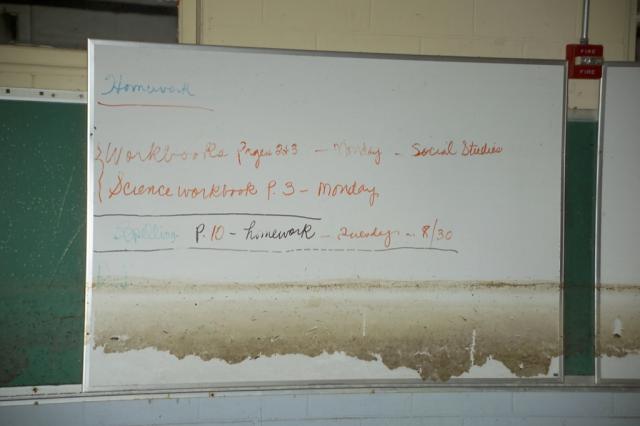 Homework
Workbooks Pages 2+3 - Monday - Social Studies
Science workbook P. 3 - Monday
Spelling P. 10 - homework - Tuesday - 8/30
FIRE
FIRE